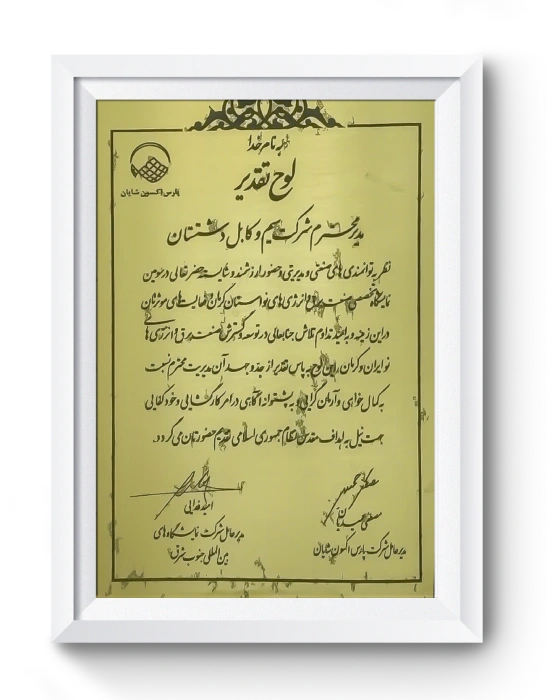 به نام خدا
لوح تقدیر
پارس اکسون شایان
مدیر محترم شرکت سیم و کابل دشستان
نظر به توانمندی های صنفی و مدیریتی و حضور ارزشمند و شایسته حضرتعالی در سومین
نمایشگاه تخصصی صنعت برق و انرژی های نو استان کرمان و حمایت های موثرتان
در این زمینه و به امید تداوم تلاش جنابعالی در توسعه و گسترش صنعت برق و انرژی های
نو ایران و کرمان این لوح به پاس تقدیر از جد و جهد آن مدیریت محترم نسبت
به کمال خواهی و آرمان گرایی و به پشتوانه آگاهی در امر کارگشایی و خودکفایی
جهت نیل به اهداف مقدس نظام جمهوری اسلامی تقدیم حضورتان می گردد.
امید فدایی
مدیر عامل شرکت نمایشگاه های
بین المللی جنوب شرق
مصطفی
مدیر عامل شرکت پارس اکسون شایان